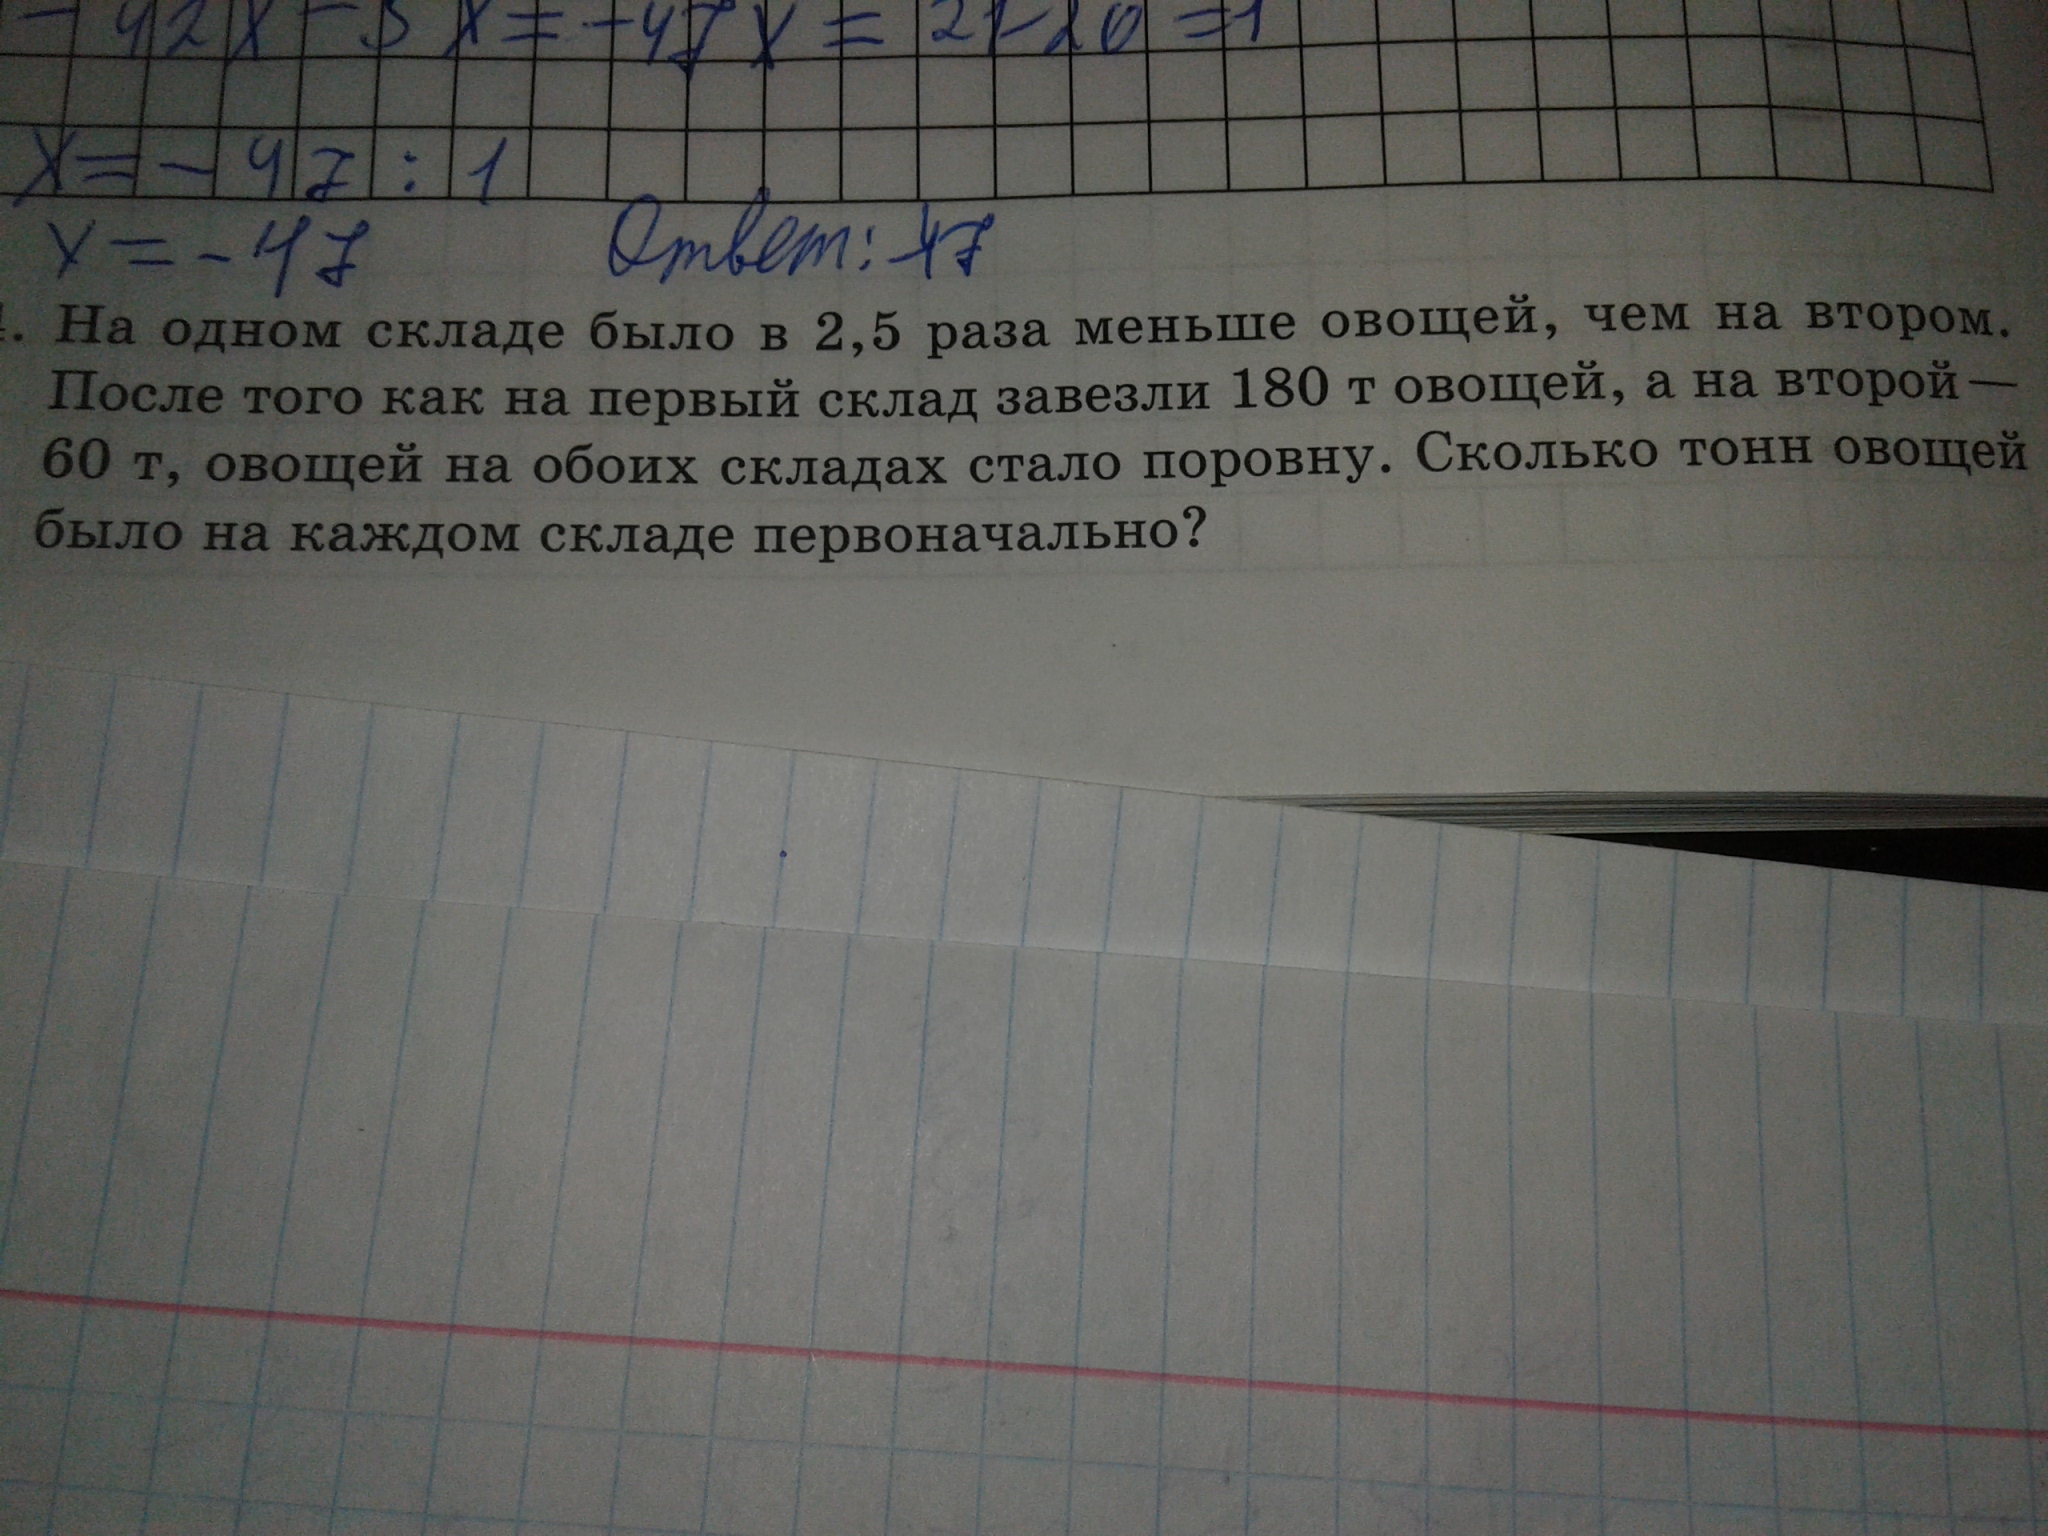 х = - 47 : 1
х = - 47 Ответ: -47
На одном складе было в 2,5 раза меньше овощей, чем на втором.
После того как на первый склад завезли 180 т овощей, а на второй —
60 т, овощей на обоих складах стало поровну. Сколько тонн овощей
было на каждом складе первоначально?